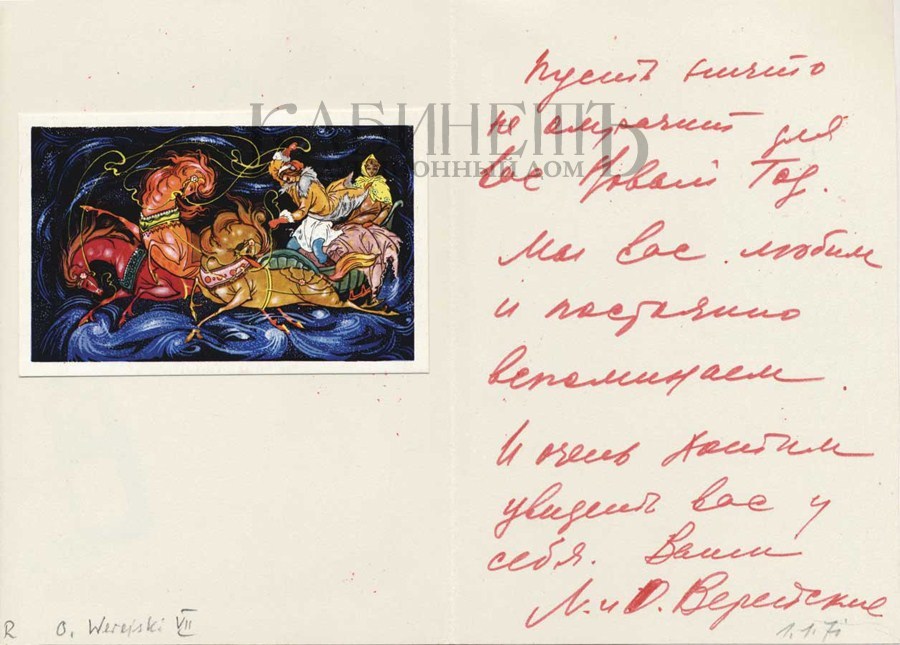 Пусть ничто
не омрачит для
Вас Новый Год.
Мы вас любим
и постоянно
вспоминаем.
И очень хотим
увидеть вас у
себя. Ваши
Л. и О. Верейские
КАБИНЕТЪ
АУКЦИОННЫЙ ДОМ
R O. Werejski VII
1.1.71